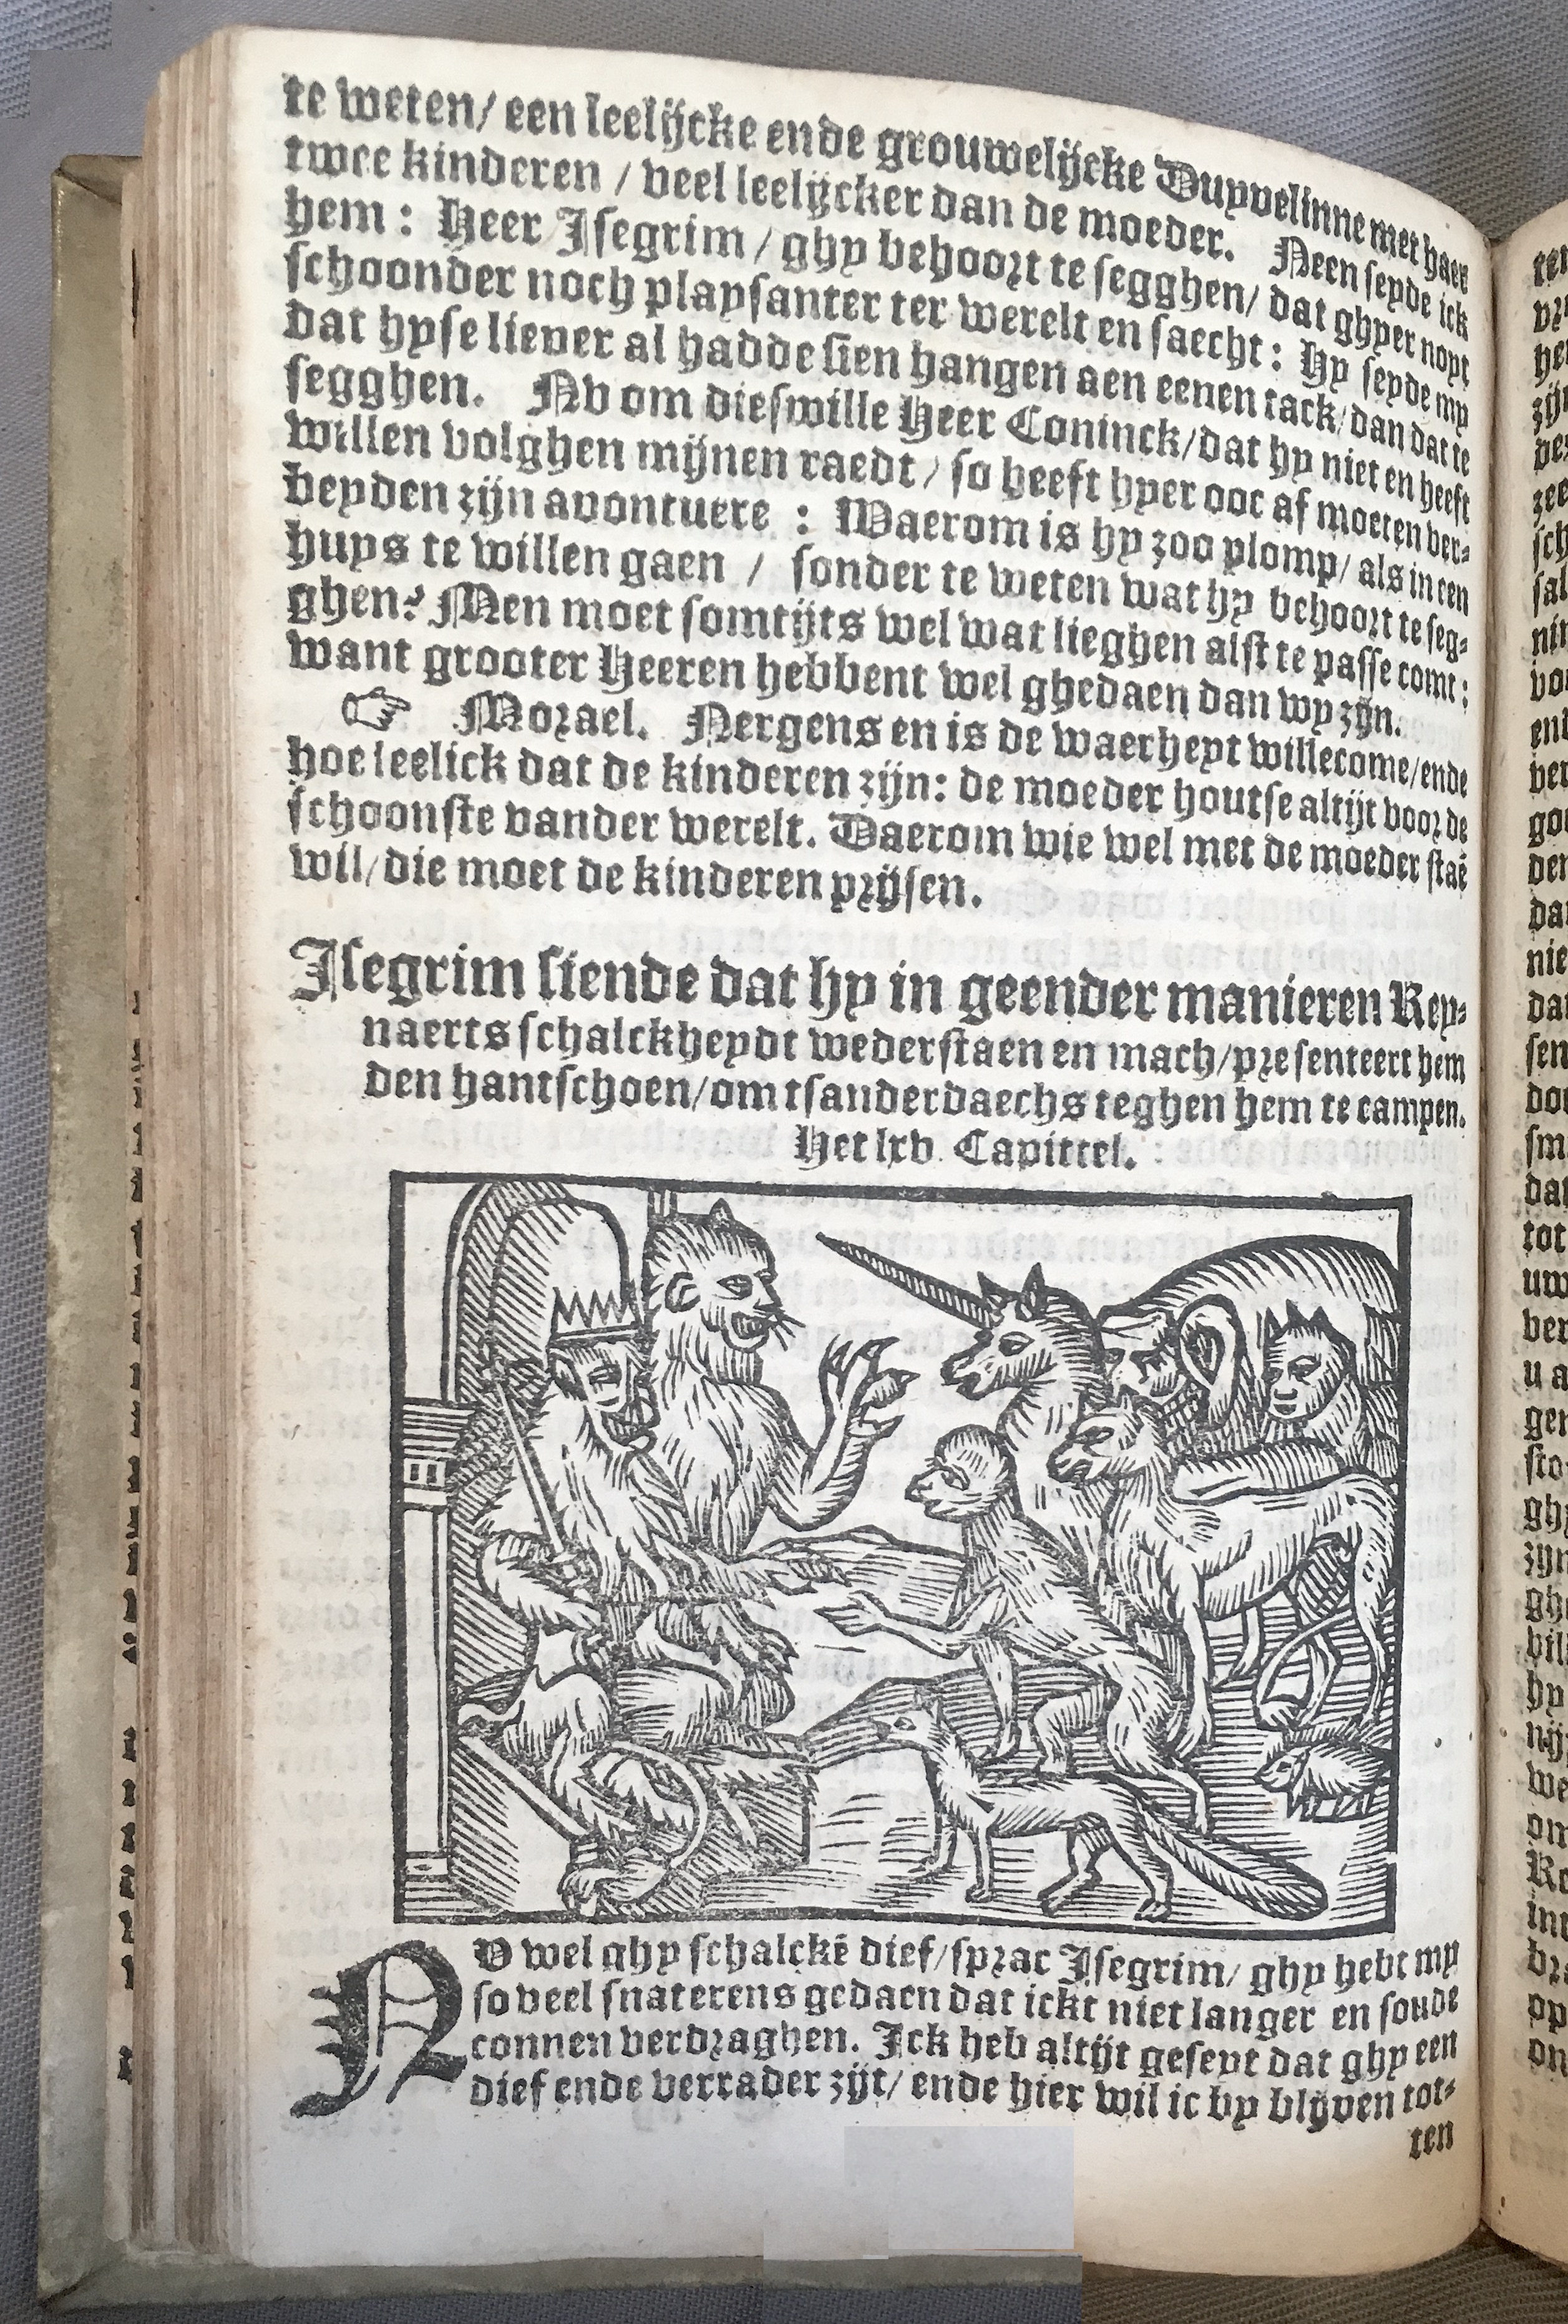 te weten/ een leelijcke ende grouwelijcke Duyvelinne met haer
twee kinderen / veel leelijcker dan de moeder. Neen seyde ick
hem : Heer Isegrim / ghy behoort te segghen/ dat ghyer noyt
schoonder noch playsanter ter werelt en saecht : Hy seyde my
dat hyse liever al hadde sien hangen aen eenen tack/ dan dat te
segghen. Nv om dieswille Heer Coninck/ dat hy niet en heeft
willen volghen mijnen raedt / so heeft hyer ooc af moeten ver-
beyden zijn avontuere : Waerom is hy zoo plomp/ als in een
huys te willen gaen / sonder te weten wat hy behoort te seg-
ghen? Men moet somtijts wel wat lieghen alst te passe comt :
want grooter Heeren hebbent wel ghedaen dan wy zijn.
☞ Morael. Nergens en is de waerheyt willecome/ ende
hoe leelick dat de kinderen zijn: de moeder houtse altijt voor de
schoonste vander werelt. Daerom wie wel met de moeder staē
wil/ die moet de kinderen prijsen.
Isegrim siende dat hy in geender manieren Rey-
naerts schalckheydt wederstaen en mach/ presenteert hem
den hantschoen/ om tsanderdaechs teghen hem te campen.
Het lxv. Capittel.
NV wel ghy schalckē dief/ sprac Isegrim/ ghy hebt my
so veel snaterens gedaen dat ickt niet langer en soude
connen verdraghen. Ick heb altijt geseyt dat ghy een
dief ende verrader zijt/ ende hier wil ic by blijven tot-
ten